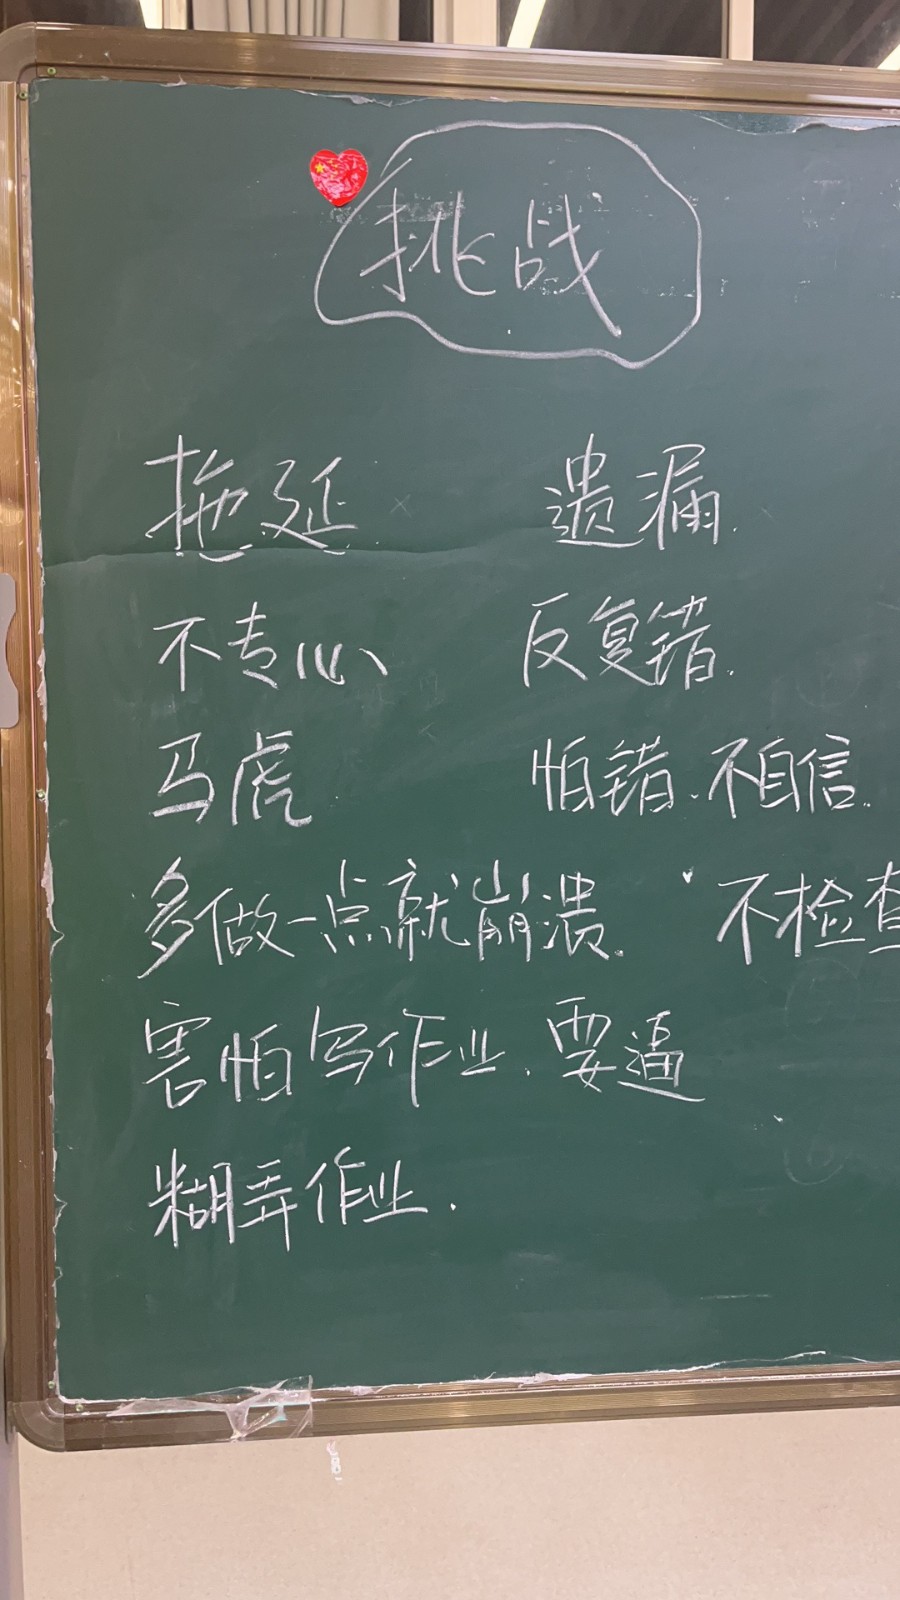 挑战
拖延 遗漏.
不专心 反复错.
马虎 怕错.不自信.
多做一点就崩溃. 不检查
害怕写作业.要逼
糊弄作业.